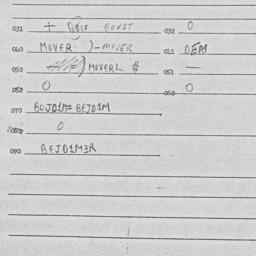 031 + 032 0
040 MOVER )-MOVER 041 DEM
050 MOVERL # 051 —
052 0 060 0
070 BOJD1M= BEJD1M
080 0
090 BEJD1M3R